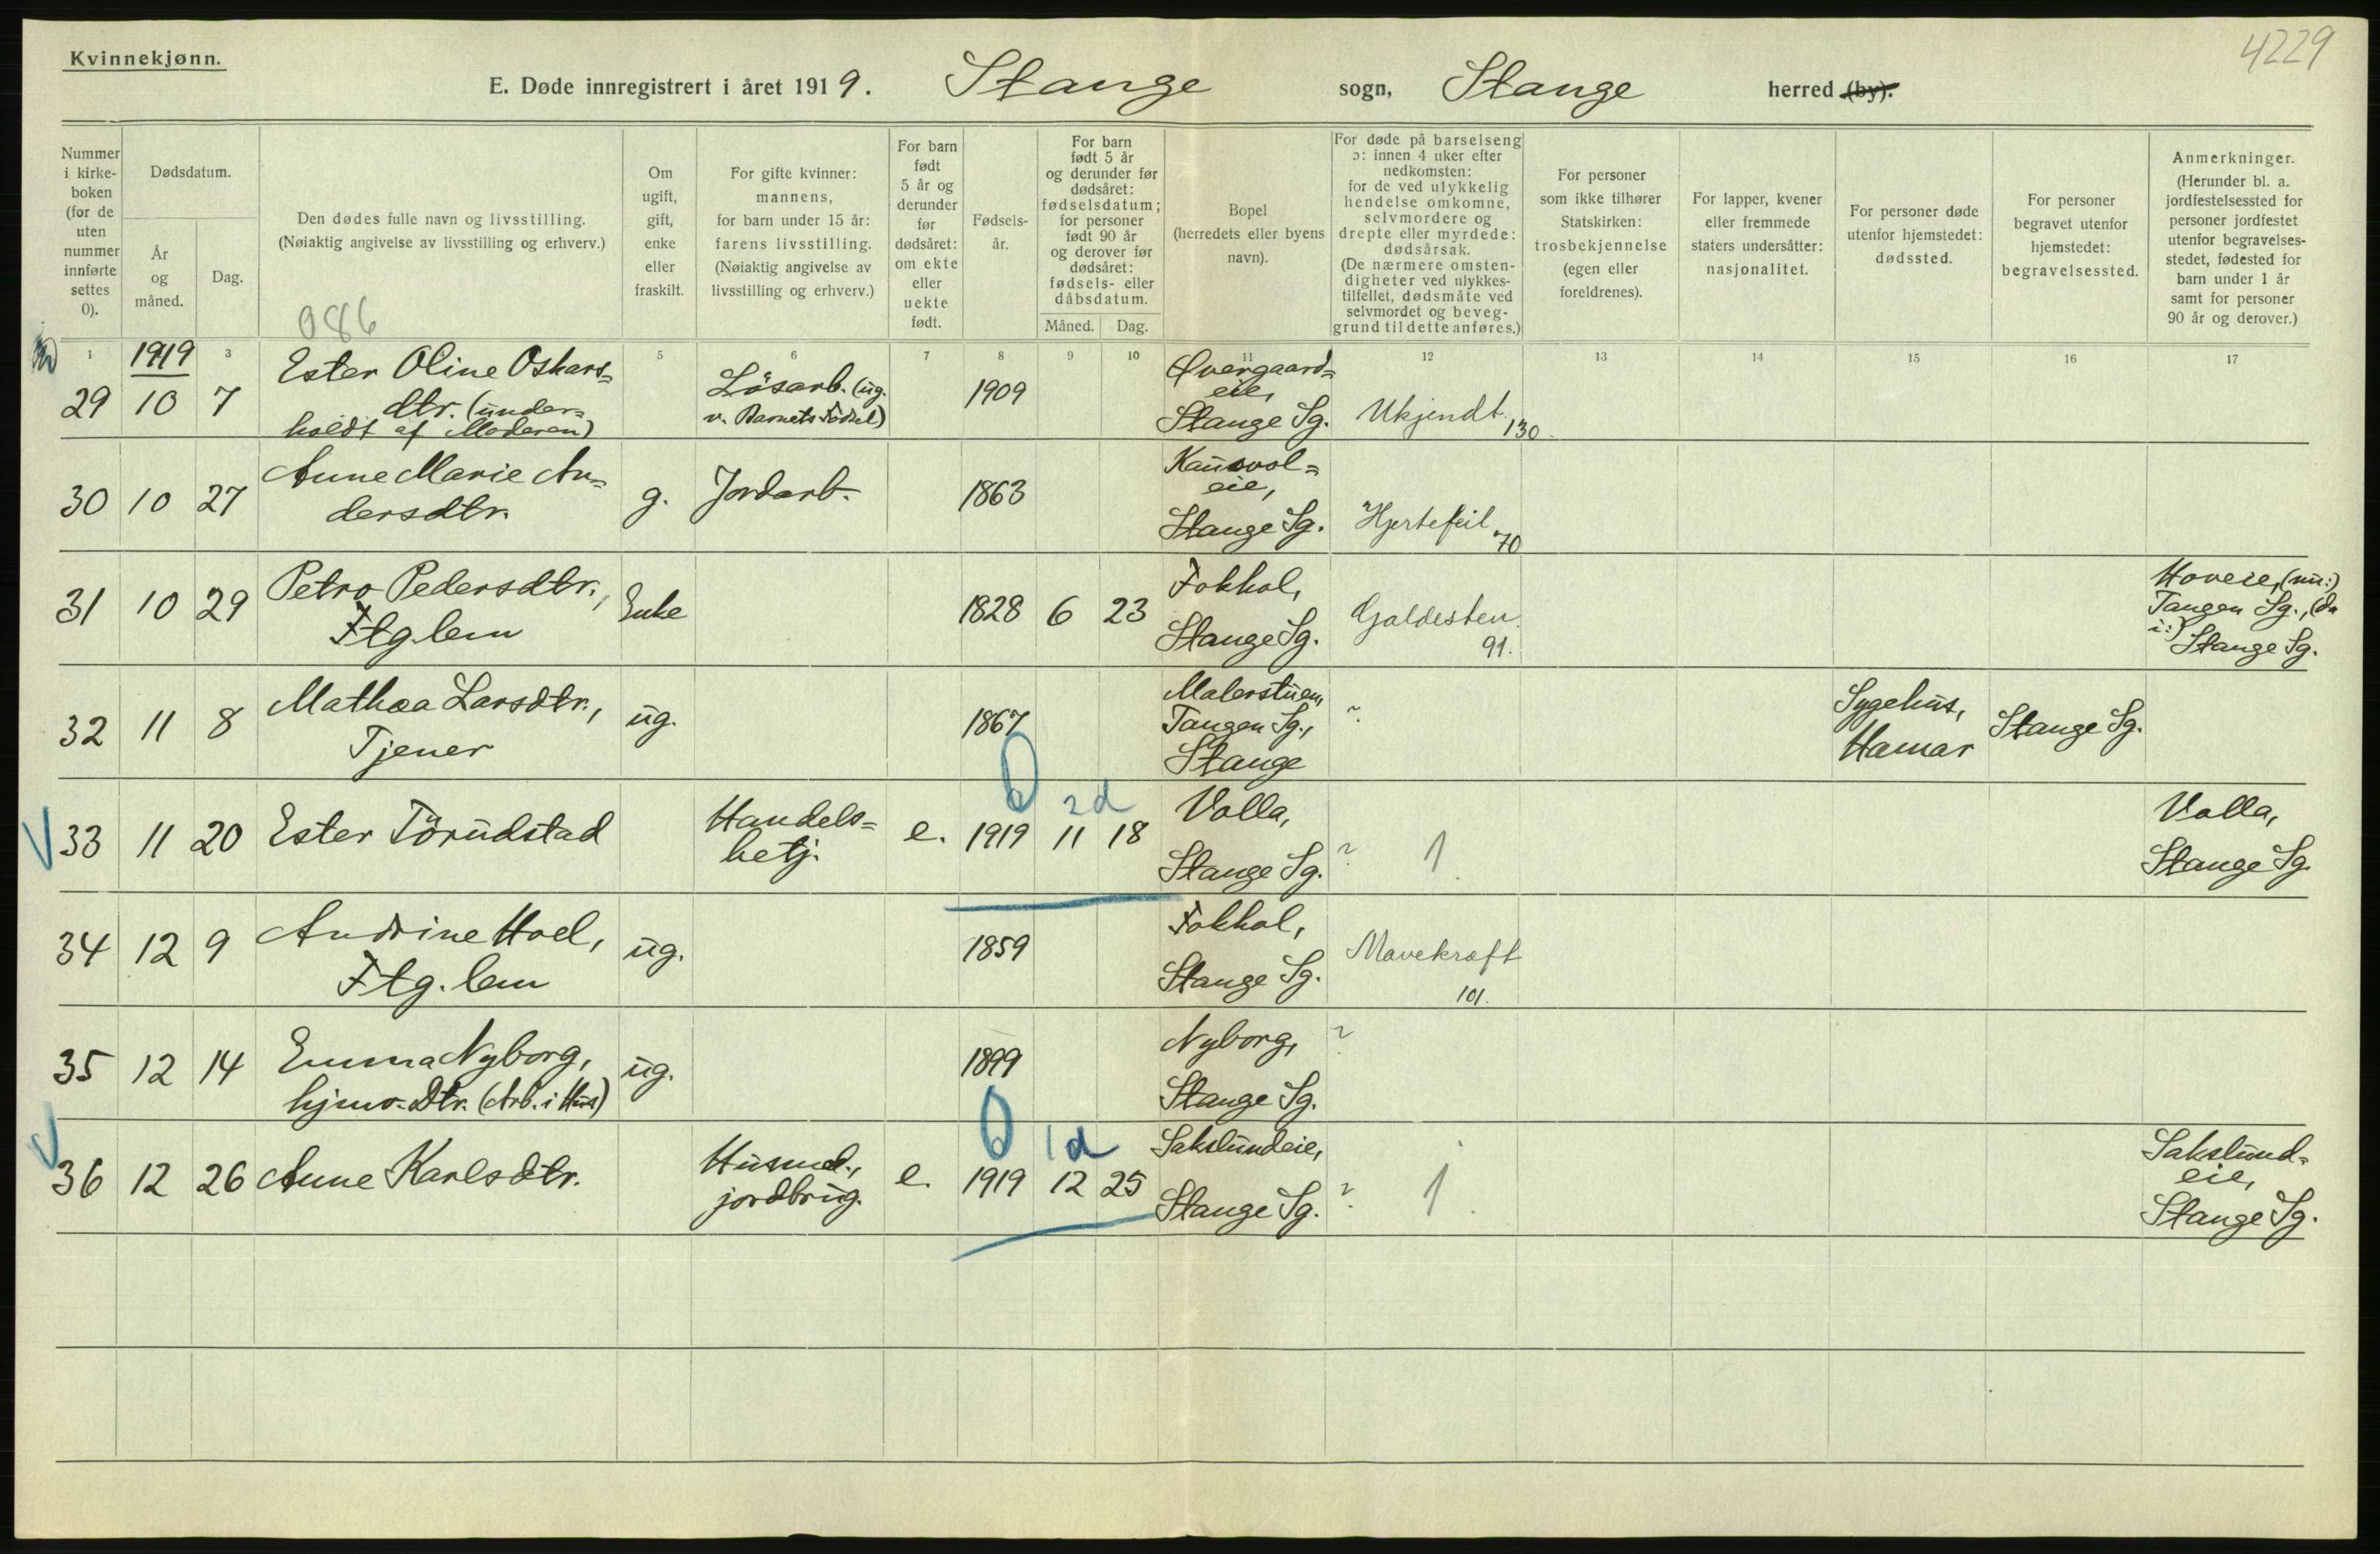 Kvinnekjønn.
4229
E. Døde innregistrert i året 1919. Stange sogn, Stange herred (by).
Nummer i kirke-boken (for de uten nummer innførte settes 0).
Dødsdatum.
År og måned.
Dag.
Den dødes fulle navn og livsstilling.
(Nøiaktig angivelse av livsstilling og erhverv.)
Om ugift, gift, enke eller fraskilt.
For gifte kvinner: mannens, for barn under 15 år: farens livsstilling. (Nøiaktig angivelse av livsstilling og erhverv.)
For barn født 5 år og derunder før dødsåret: om ekte eller uekte født.
Fødsels-år.
For barn født 5 år og derunder før dødsåret: fødselsdatum; for personer født 90 år og derover før dødsåret: fødsels- eller dåbsdatum.
Måned. Dag.
Bopel (herredets eller byens navn).
For døde på barselseng ɔ: innen 4 uker efter nedkomsten: for de ved ulykkelig hendelse omkomne, selvmordere og drepte eller myrdede: dødsårsak. (De nærmere omsten-digheter ved ulykkes-tilfellet, dødsmåte ved selvmordet og beveg-grund til dette anføres.)
For personer som ikke tilhører Statskirken: trosbekjennelse (egen eller foreldrenes).
For lapper, kvener eller fremmede staters undersåtter: nasjonalitet.
For personer døde utenfor hjemstedet: dødssted.
For personer begravet utenfor hjemstedet: begravelsessted.
Anmerkninger. (Herunder bl. a. jordfestelsessted for personer jordfestet utenfor begravelses-stedet, fødested for barn under 1 år samt for personer 90 år og derover.)
086
1 1919 3 5 6 7 8 9 10 11 12 13 14 15 16 17
29 10 7 Ester Oline Oskars=
dtr. (under=
holdt af Moderen)
Løsarb. (ug.
v. Barnets Fødsel)
1909
Øvergaard=
eie,
Stange Sg.
Ukjendt
130
30 10 27 Anne Marie An=
dersdtr.
g. Jordarb. 1863
eie,
Stange Sg.
Hjertefeil
70
31 10 29 Petra Pedersdtr.,
Ftglem
Enke 1828 6 23
Fokhol,
Stange Sg.
Galdesten
91.
Hoveie, (nu:)
Tangen Sg., (da
i:) Stange Sg.
32 11 8 Mathea Larsdtr.,
Tjener
ug. 1867
Malerstuen,
Tangen Sg.,
Stange
?
Sygehus,
Hamar
Stange Sg.
33 11 20 Ester Törudstad
Handels=
betj.
e. 1919 11 18
2d
Volla,
Stange Sg.
? 1
Volla,
Stange Sg.
34 12 9 Andrine Hoel,
Ftg. lem
ug. 1859
Fokhol,
Stange Sg.
Mavekræft
101.
35 12 14 Emma Nyborg,
hjmv. Dtr. (Arb. i Hus)
ug. 1899
Nyborg,
Stange Sg.
?
36 12 26 Anne Karlsdtr.
Husmd.,
jordbrug.
e. 1919 12 25
1d
Sakslundeie,
Stange Sg.
? 1
Sakslund=
eie,
Stange Sg.